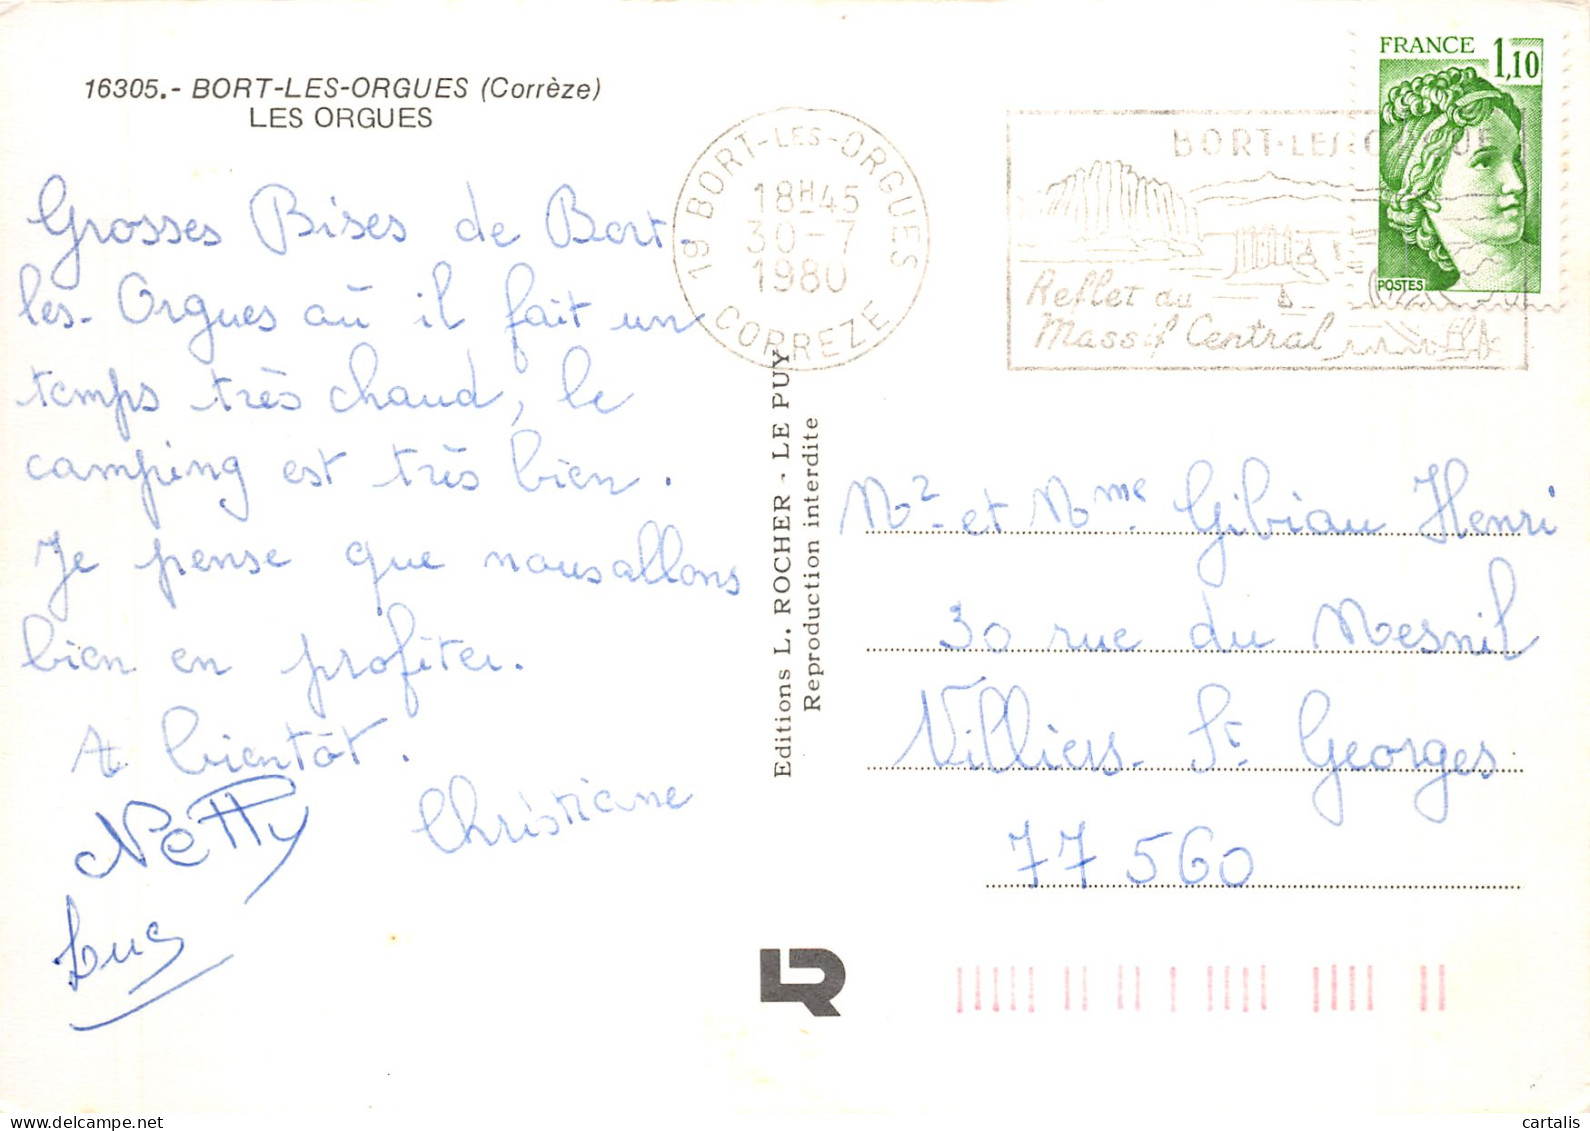 16305.- BORT-LES-ORGUES (Corrèze)
LES ORGUES
Grosses Bises de Bort.
les-Orgues où il fait un
temps très chaud, le
camping est très bien.
Je pense que nous allons
bien en profiter.
A bientôt.
Netty
Christiane
Luc
19 BORT-LES-ORGUES
18H45
30-7
1980
CORREZE
BORT-LES-ORGUES
Reflet du
Massif Central
FRANCE 1,10
POSTES
Editions L. ROCHER - LE PUY
Reproduction interdite
Mr et Mme Gibiau Henri
30 rue du Mesnil
Villiers-St Georges
77560
LR
cartalis